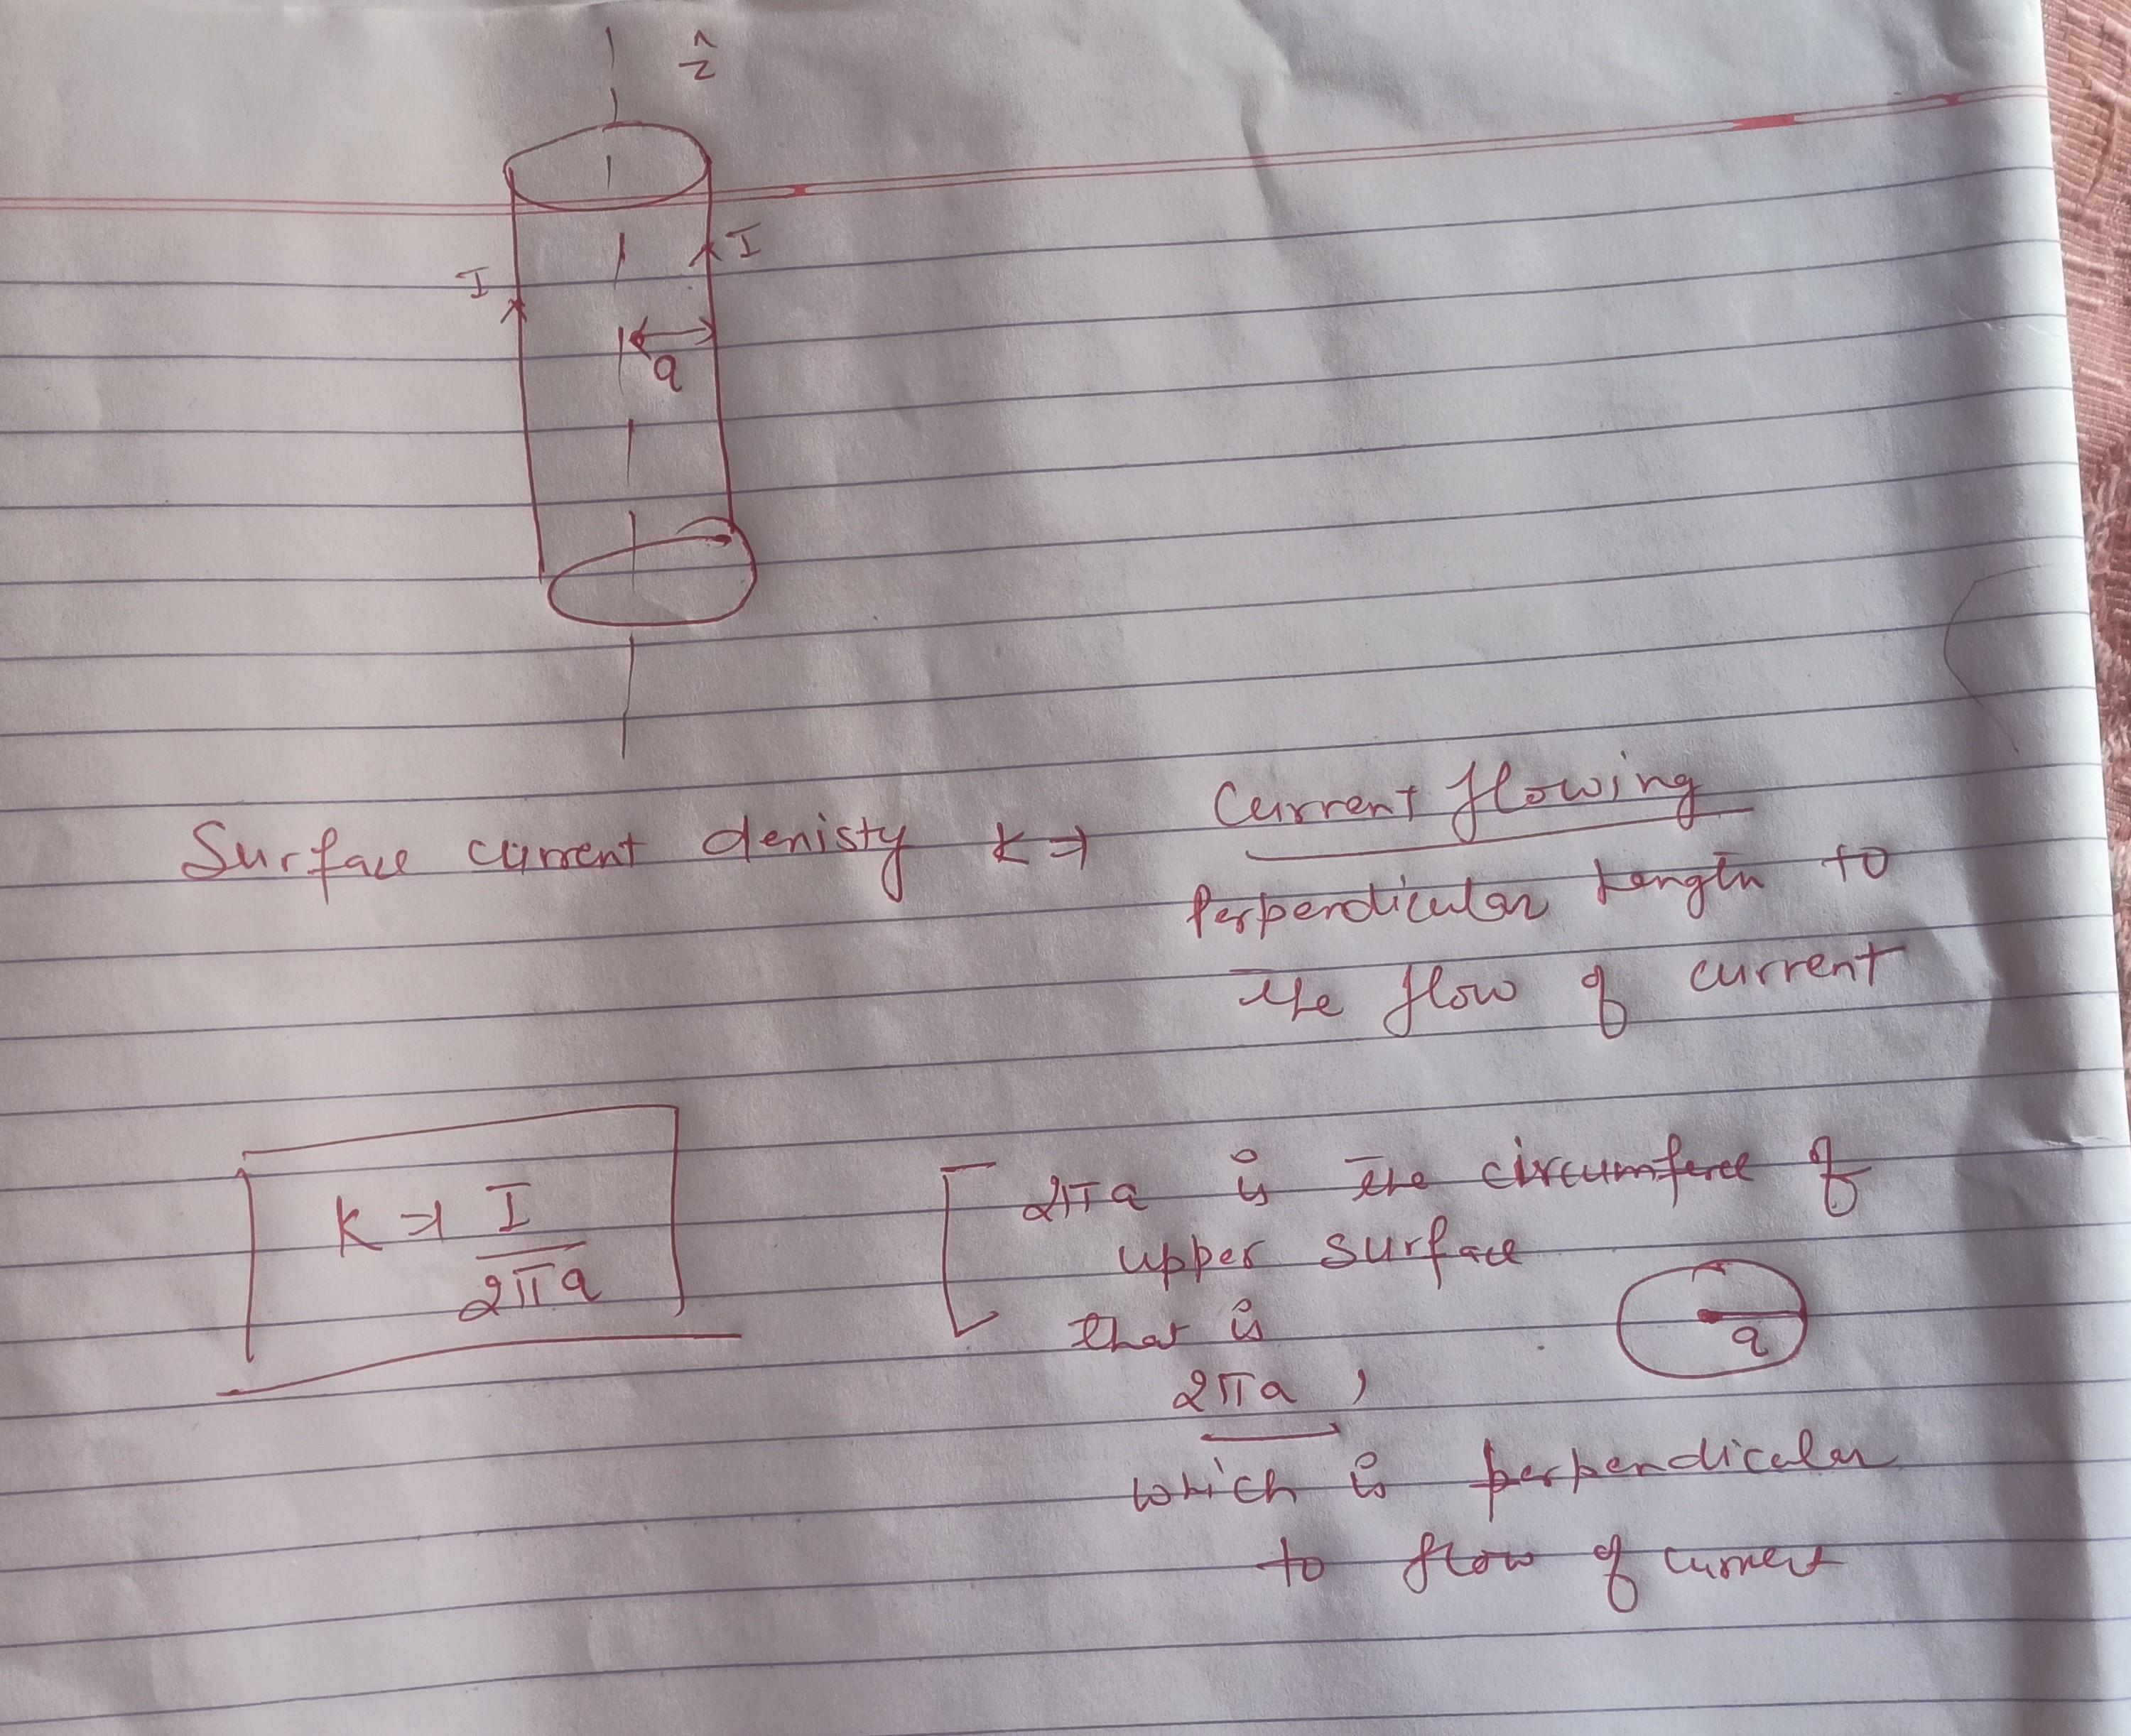 ẑ
I
I
a
Surface current denisty K ⇒ Current flowing
Perpendicular Length to
the flow of current
K ⇒ I
2πa
2πa is the circumferece of
upper surface
that is
a
2πa ,
which is perpendicular
to flow of current